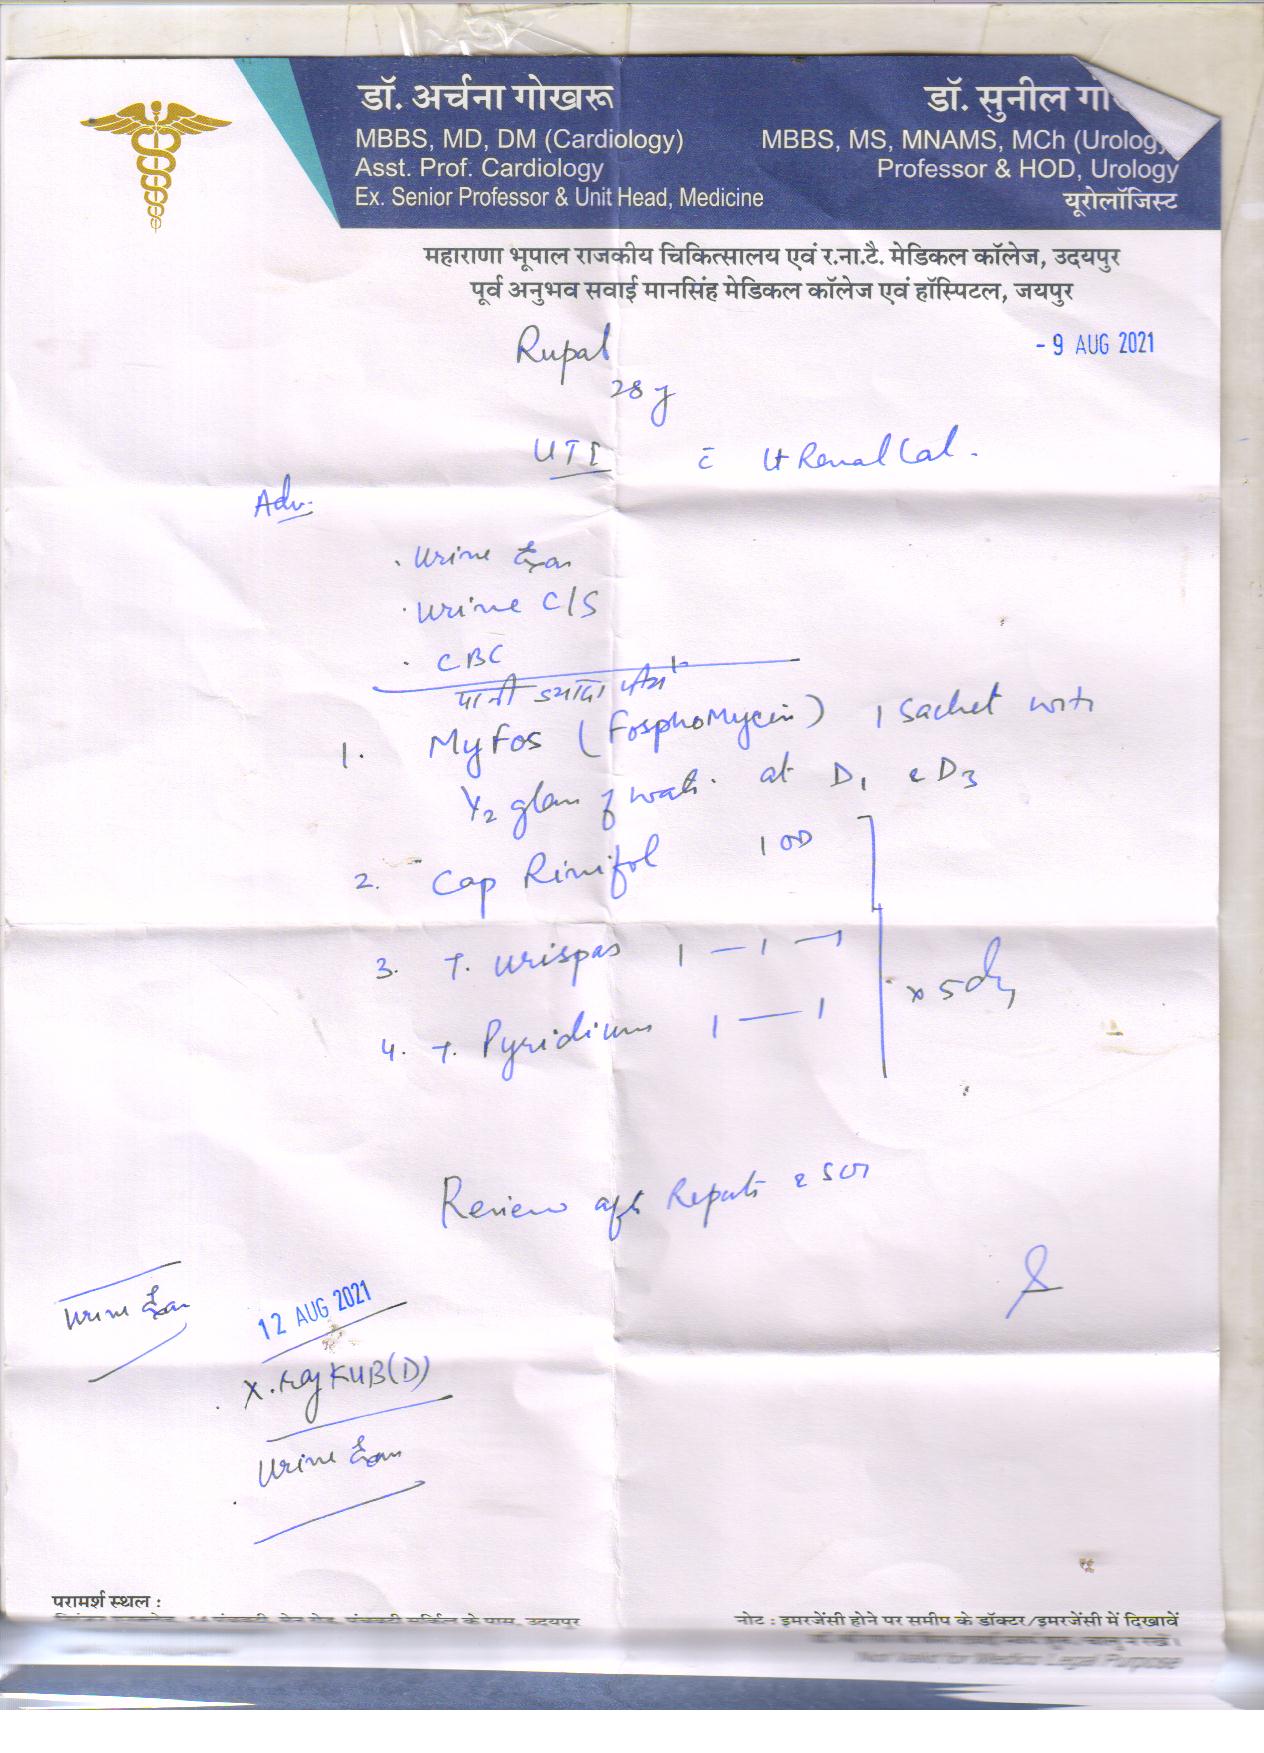 डॉ. अर्चना गोखरू
MBBS, MD, DM (Cardiology)
Asst. Prof. Cardiology
Ex. Senior Professor & Unit Head, Medicine
डॉ. सुनील
MBBS, MS, MNAMS, MCh (Urology
Professor & HOD, Urology
यूरोलॉजिस्ट
महाराणा भूपाल राजकीय चिकित्सालय एवं र.ना.टै. मेडिकल कॉलेज, उदयपुर
पूर्व अनुभव सवाई मानसिंह मेडिकल कॉलेज एवं हॉस्पिटल, जयपुर
Rupal
- 9 AUG 2021
28 y
UTI c̄ Lt Renal Cal.
Adv.
. Urine Exam
. Urine C/S
. CBC
पानी ज्यादा पीयें
1. MyFos (Fosphomycin) 1 sachet with
1/2 glass of water at D1 & D3
2. Cap Rinifol 1 OD
3. T. Urispas 1 — 1 — 1
x 5 day
4. T. Pyridium 1 — 1
Review after Reports
Urine Exam
12 AUG 2021
X.Ray KUB(D)
Urine Exam
परामर्श स्थल :
नोट : इमरजेंसी होने पर समीप के डॉक्टर/इमरजेंसी में दिखावें
Not Valid for Medico Legal Purpose